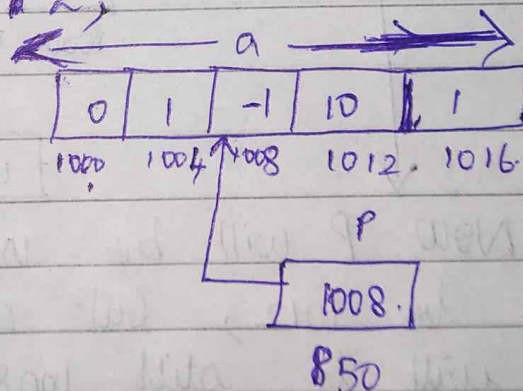 a
0 1 -1 10 1
1000 1004 1008 1012. 1016.
P
1008.
850